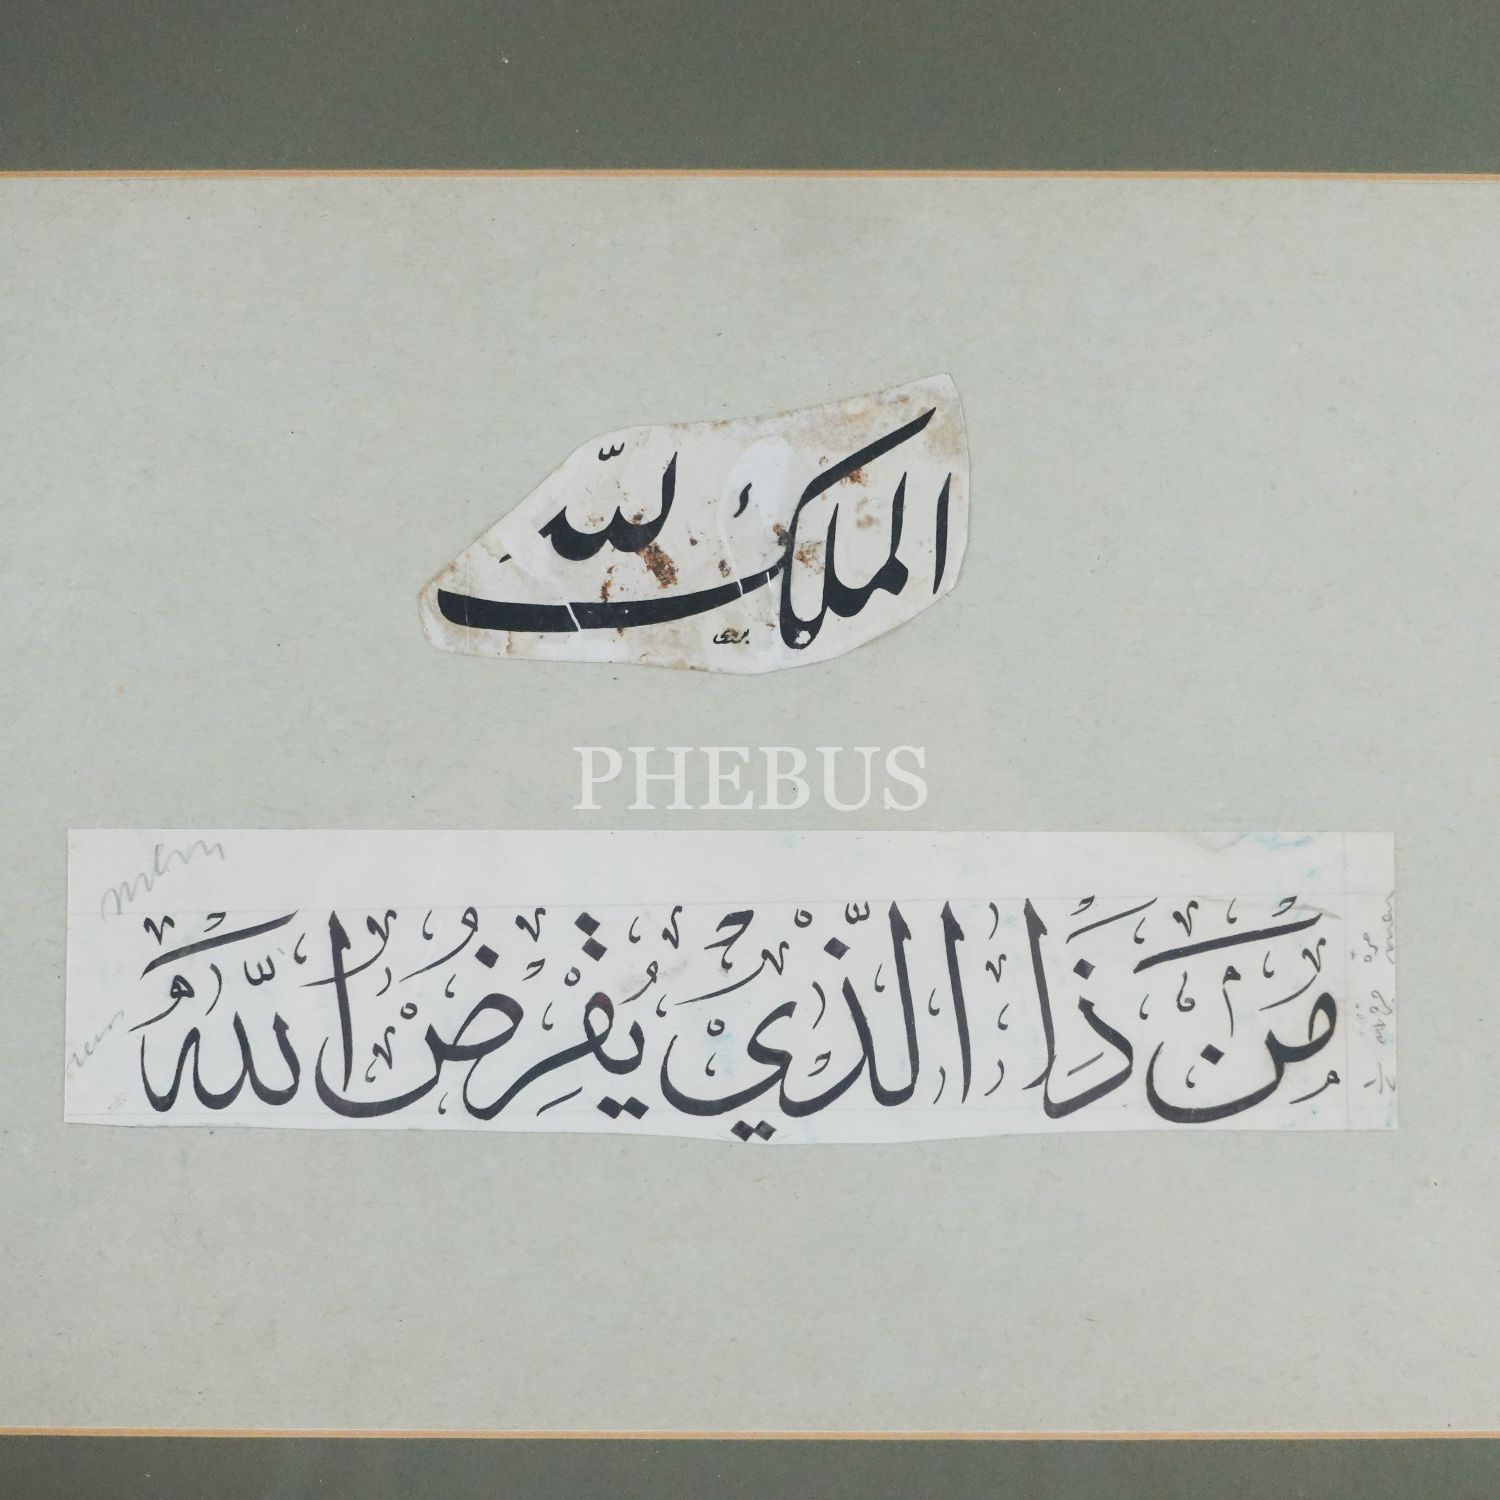 الملك لله
PHEBUS
مَنْ ذَا الَّذِي يُقْرِضُ اللَّهَ